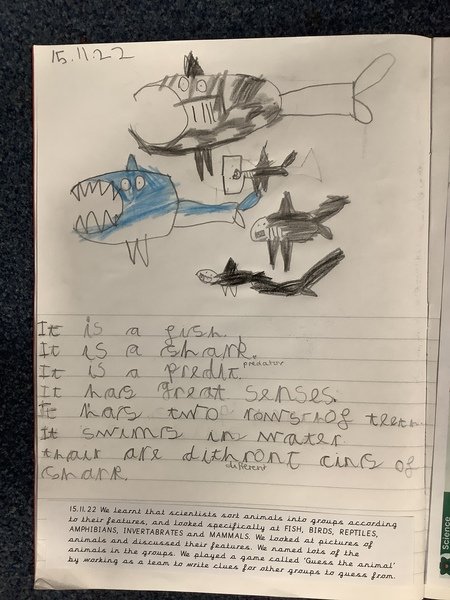 15.11.22
It is a fish.
It is a shark.
It is a predit.
predator
It has great senses.
It has two rows of teeth
It swims in water
thair are dithront cins of
different
shark.
15.11.22 We learnt that scientists sort animals into groups according
to their features, and looked specifically at FISH, BIRDS, REPTILES,
AMPHIBIANS, INVERTABRATES and MAMMALS. We looked at pictures of
animals and discussed their features. We named lots of the
animals in the groups. We played a game called 'Guess the animal'
by working as a team to write clues for other groups to guess from.
Science